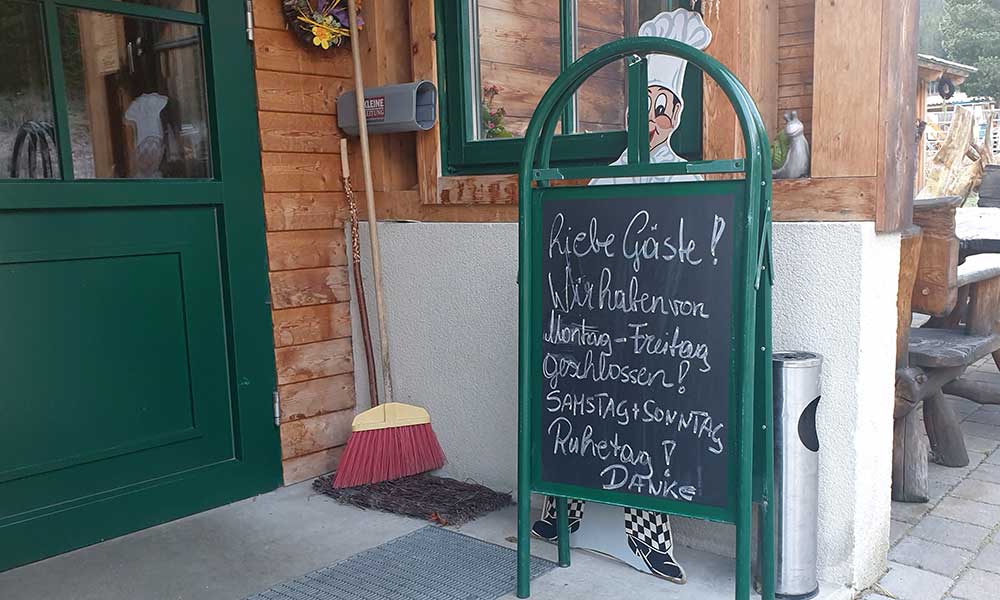 KLEINE
ZEITUNG
Liebe Gäste!
Wir haben von
Montag - Freitag
geschlossen!
SAMSTAG + SONNTAG
Ruhetag!
DANKE